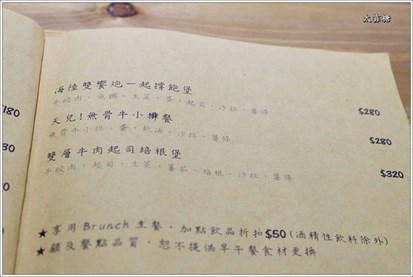 大宮糖
海陸雙饗炮一起撐飽堡
牛絞肉、魚柳、生菜、蛋、起司、沙拉、薯條
$280
180
天兒!無骨牛小排餐
無骨牛小排、蛋、奶油、沙拉、薯條
$280
30
雙層牛肉起司培根堡
牛絞肉、起司、生菜、蕃茄、培根、沙拉、薯條
$320
80
★享用Brunch主餐,加點飲品折扣$50(酒精性飲料除外)
★顧及餐點品質,恕不提供早午餐食材更換